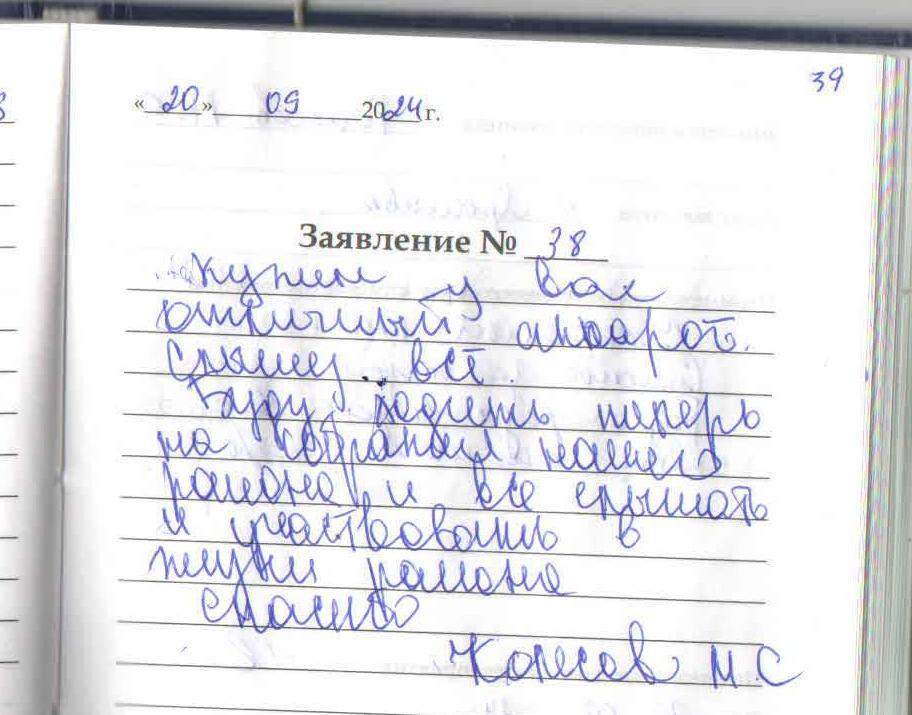 39
«20» 09 2024 г.
Заявление № 38
купил у вас
отличный апарат.
слышу всё.
Буду ходить теперь
на собрания нашего
района и все слышать
и участвовать в
жизни района
спасибо
М.С